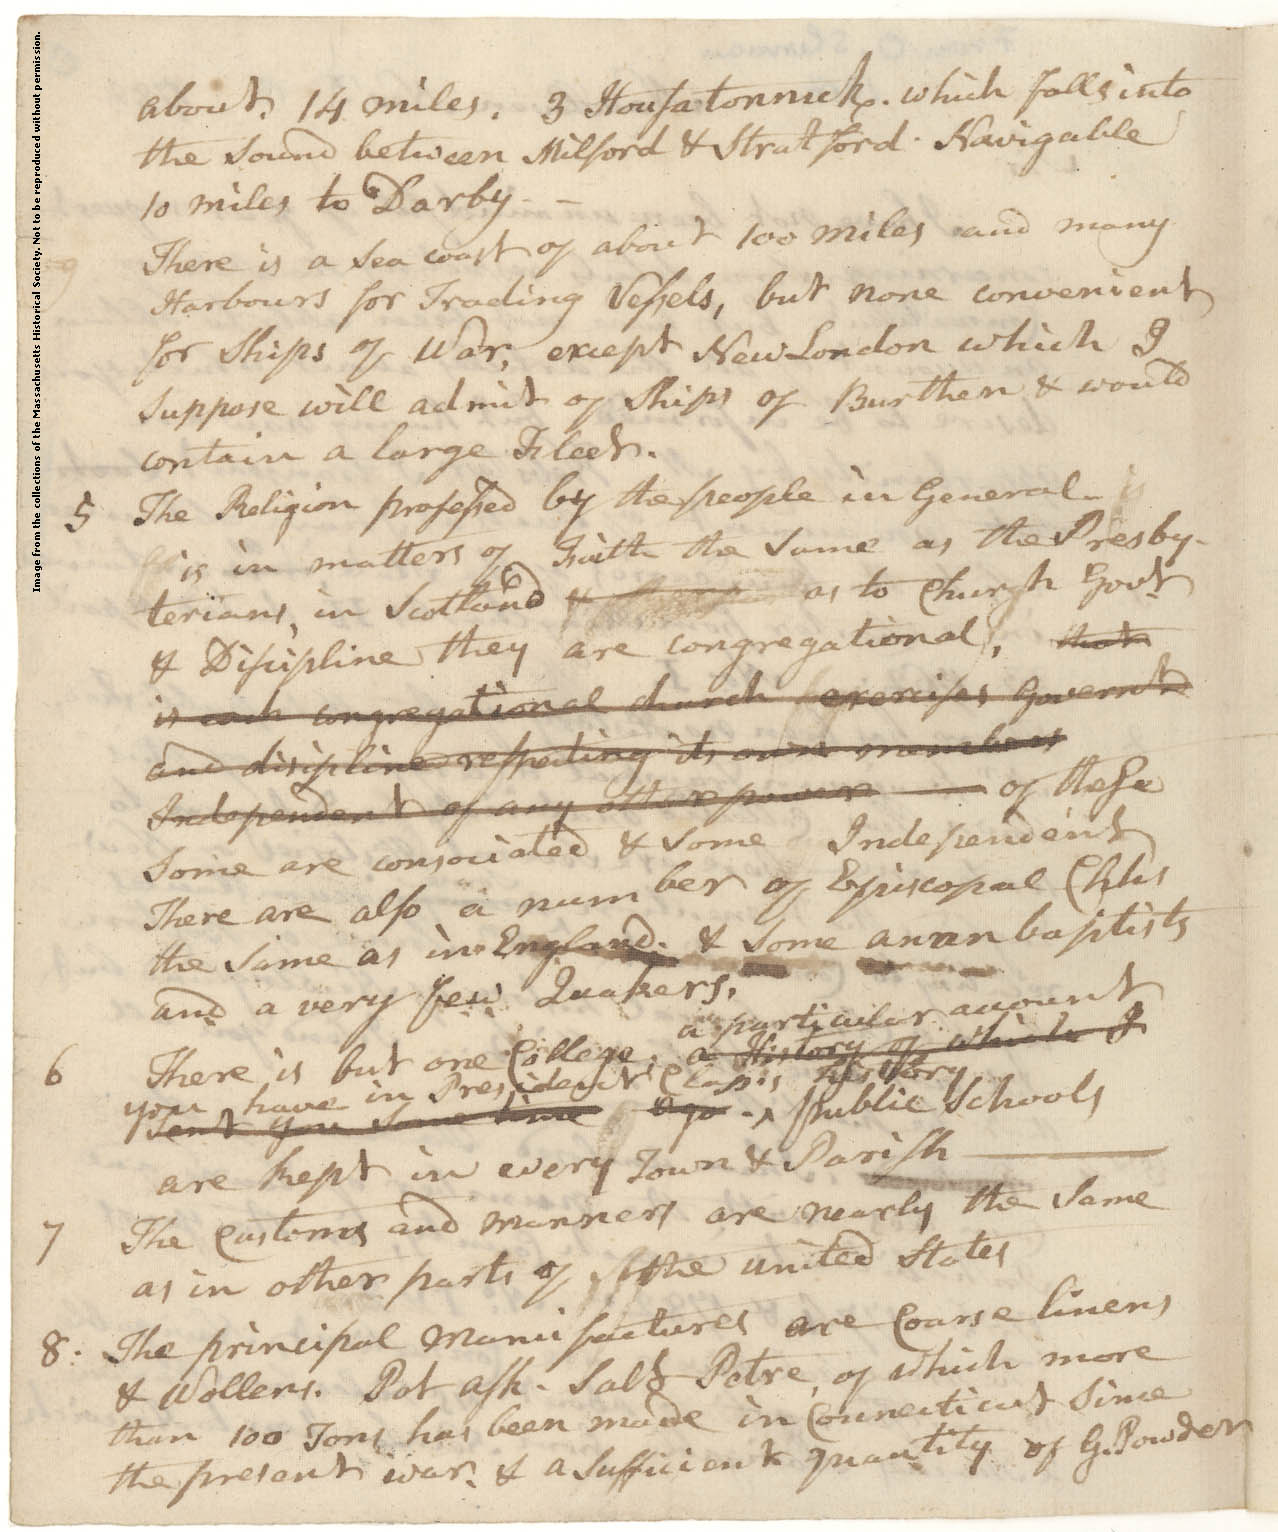 Image from the collections of the Massachusetts Historical Society. Not to be reproduced without permission.
about 14 miles. 3 Housatonnuck. which falls into
the Sound between Milford & Stratford. Navigable
10 miles to Darby - -
There is a Sea coast of about 100 miles and many
Harbours for Trading Vessels, but none convenient
for Ships of War, except New London which I
suppose will admit of Ships of Burthen & would
contain a large Fleet.
5 The Religion professed by the people in General is
is in matters of Faith the same as the Presby-
terians, in Scotland & as to Church Govt
& Discipline they are congregational, that
is each congregational church exercises Governt
and discipline respecting its own members
Independent of any other power —— of these
Some are consociated & some Independent
There are also a number of Episcopal Chhs
the same as in England. & some annabaptists
and a very few Quakers.
a particular account
6 There is but one College, a History of which I
you have in President Claps's history
sent you some time ago - Public Schools
are kept in every Town & Parish ——
7 The Customs and manners are nearly the same
as in other parts of the united States
8: The principal Manufactures are Coarse linens
& Wollens. Pot ash. Salt Petre, of which more
than 100 Tons has been made in Connecticut Since
the present war. & a sufficient quantity of G. Powder